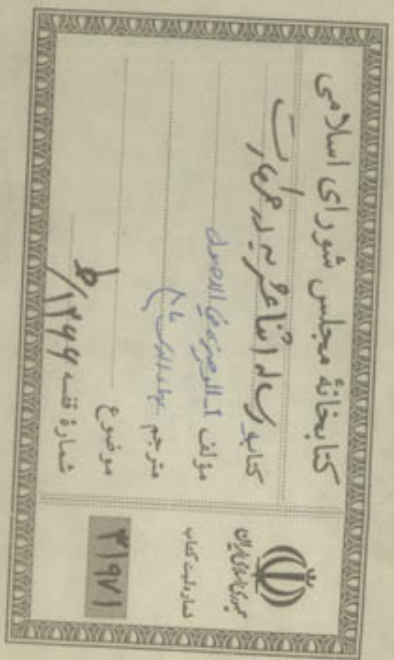 کتابخانهٔ مجلس شورای اسلامی
کتاب رساله اثنا عشریه در
مؤلف ۲ـ الوجیزه فی الاصول
مترجم
موضوع
شمارهٔ قفسه ۱۲۶۶/ط
جمهوری اسلامی ایران
شماره ثبت کتاب
۳۱۹۷۱